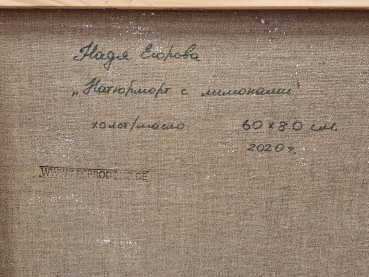 Надя Егорова
„Натюрморт с лимонами"
холст/масло 60 x 80 см.
2020 г.